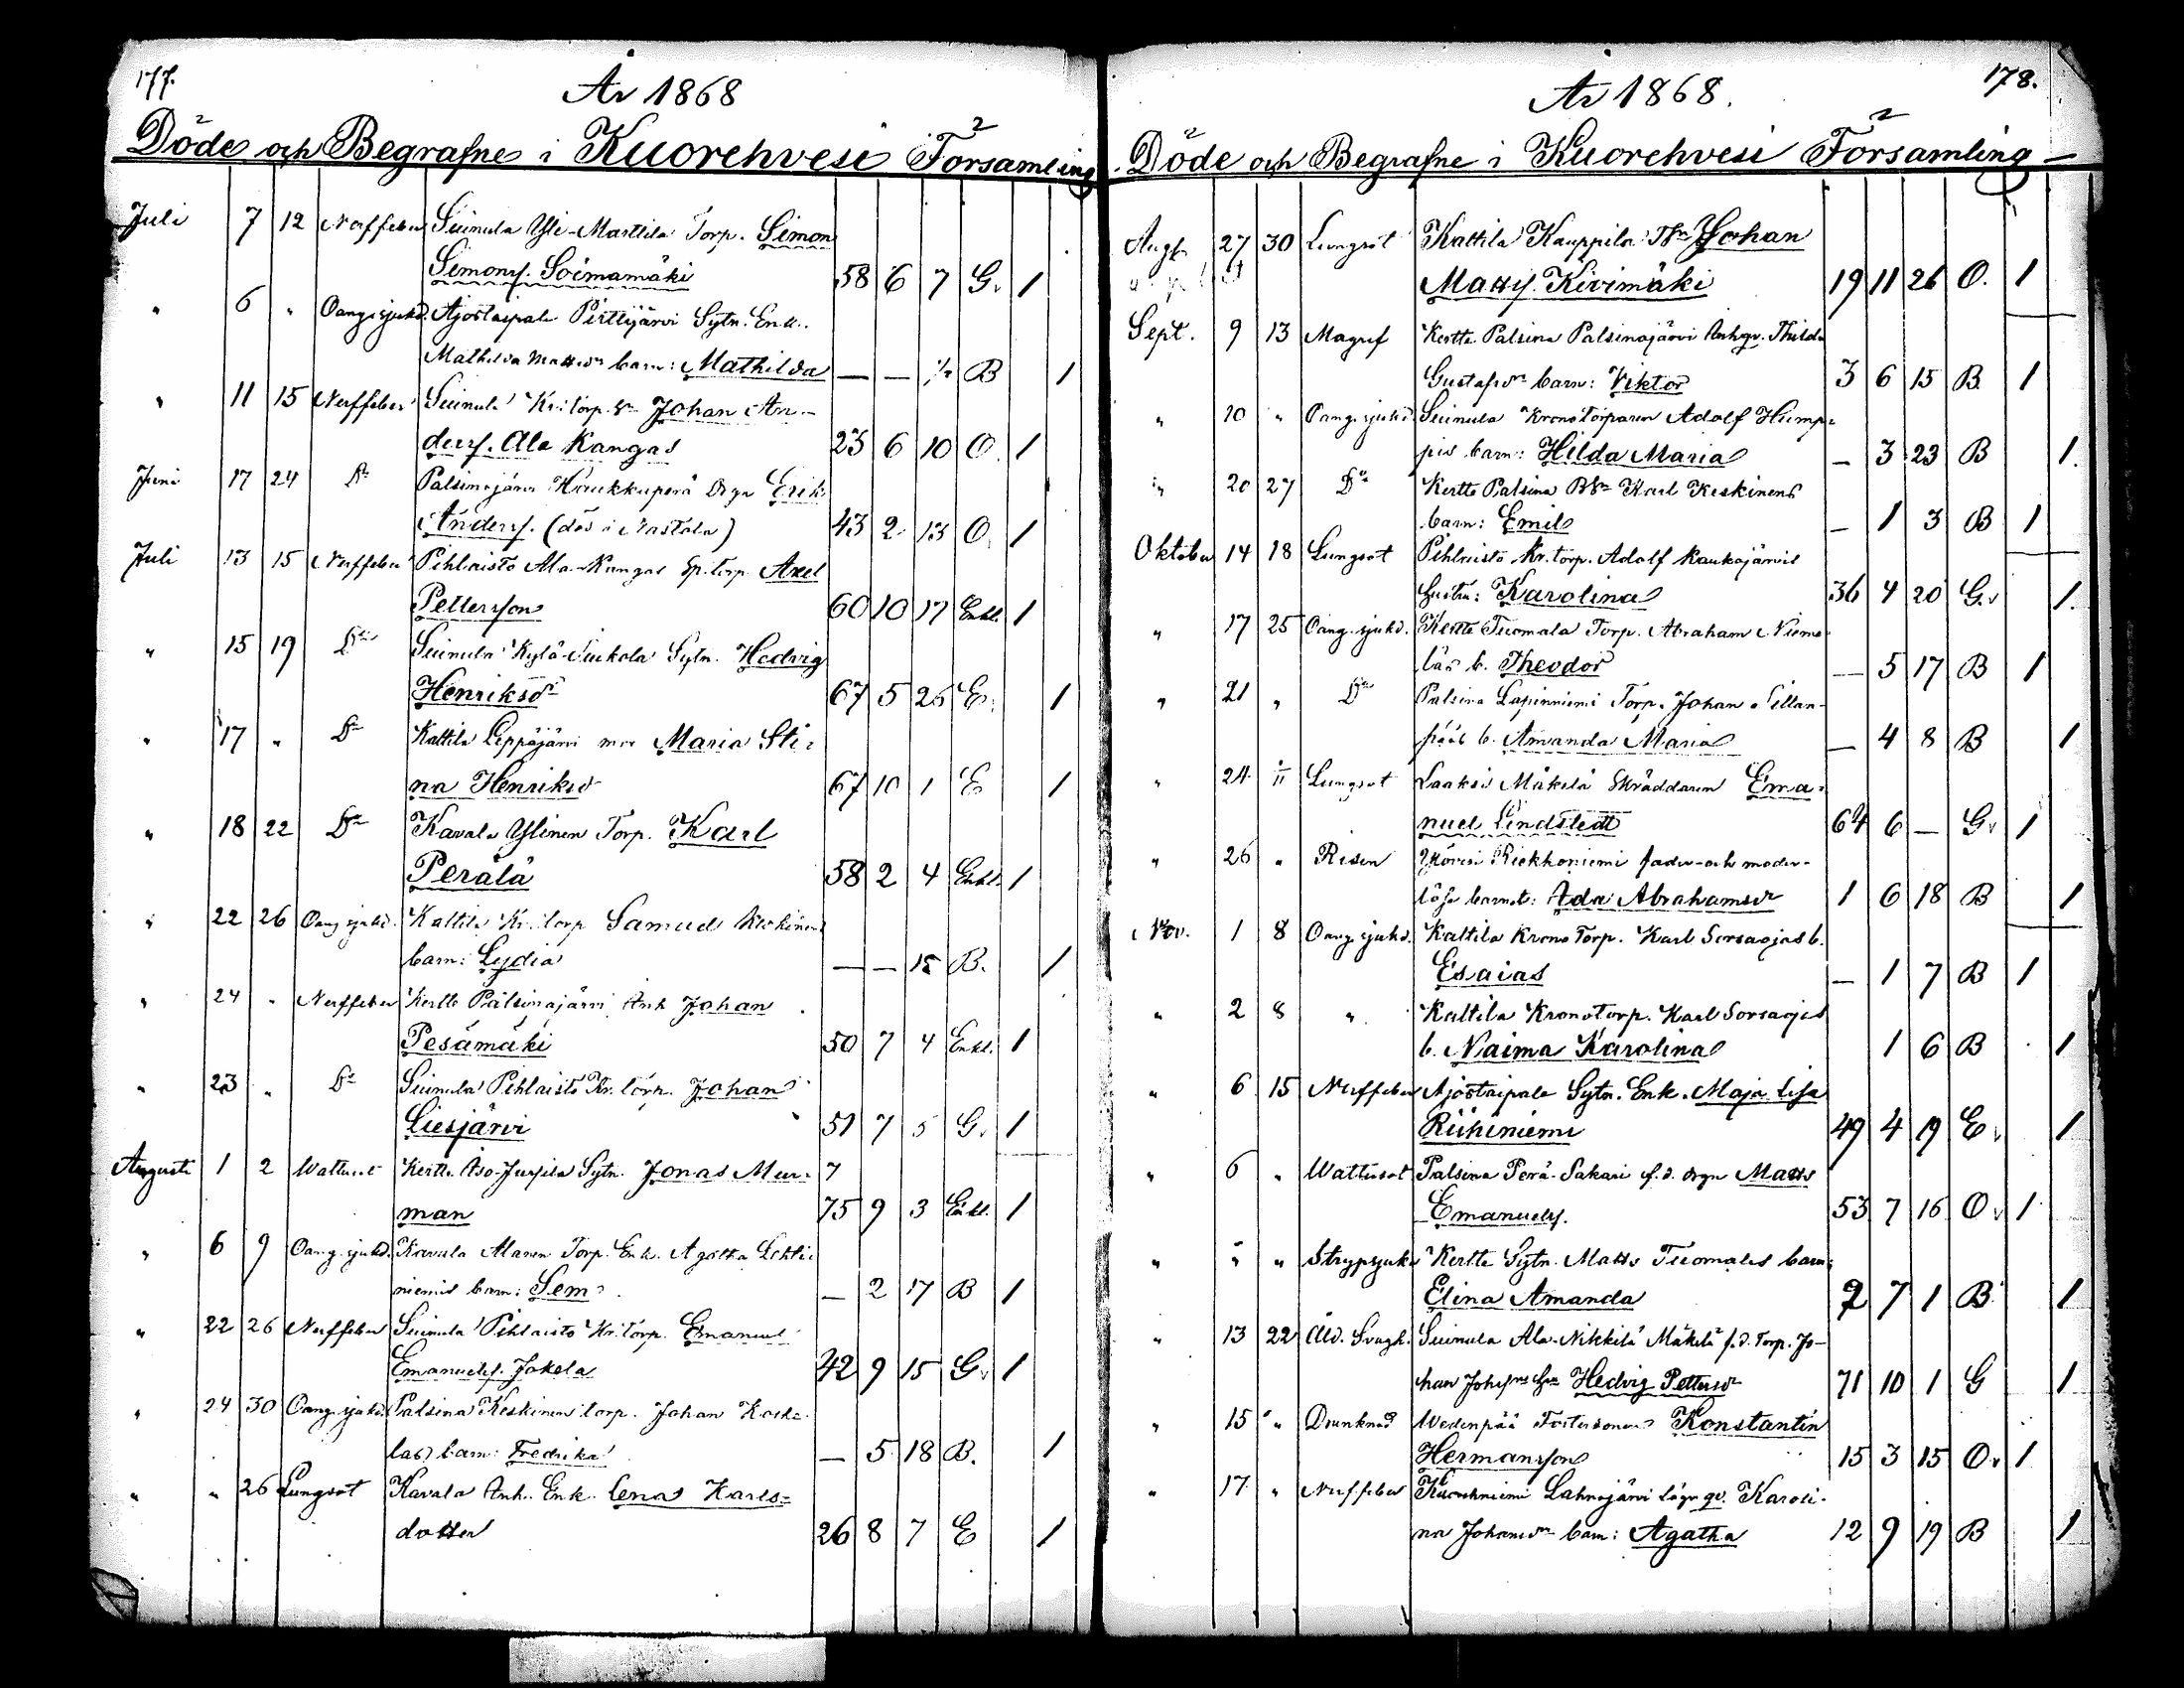 177.
År 1868
Döde och Begrafne i Kuorehvesi Församling
Juli 7 12 Nerffeber Suinula Yli-Marttila Torp. Simon
Simons. Soimamäki 58 6 7 G. 1
" 6 " Oang. sjukd. Ajostaipale Pirttijärvi Sytn. Enk.
Mathilda Mattsdr barn: Mathilda — — ½ B 1
" 11 15 Nerffeber Suinula Kr. torp. Sn Johan An-
ders. Ala Kangas 23 6 10 O 1
Juni 17 24 Do Palsinajärvi Haukkaperä Drgn Erik
Anders. (död i Nastola) 43 2 13 O. 1
Juli 13 15 Nerffeber Pihlaisto Ala-Kangas Sp. torp. Axel
Pettersson 60 10 17 Enkl. 1
" 15 19 Do Suinula Kylä-Siukola Sytn. Hedvig
Henriksdr 67 5 26 E. 1
" 17 " Do Kattila Leppäjärvi Maria Sti-
na Henriksdr 67 10 1 E 1
" 18 22 Do Kavala Ylinen Torp. Karl
Perälä 58 2 4 Enkl. 1
" 22 26 Oang. sjukd. Kattila Kr. torp Samuel Keskinens
barn: Lydia — — 15 B. 1
" 24 " Nerffeber Kertte Palsinajärvi Inh Johan
Pesämäki 50 7 4 Enkl. 1
" 23 " Do Suinula Pihlaisto Kr. torp. Johan
Liesjärvi 51 7 5 G. 1
Augusti 1 2 Wattusot Kertte Iso-Juspila Sytn. Jonas Mur-
man 75 9 3 Enkl. 1
" 6 9 Oang. sjukd. Kavala Alanen Torp. Enk. Agatha Lehti-
niemis barn: Sem — 2 17 B 1
" 22 26 Nerffeber Suinula Pihlaisto Kr. torp. Emanuel
Emanuels. Jokela 42 9 15 G. 1
" 24 30 Oang. sjukd. Palsina Keskinen torp. Johan Koske-
las barn: Fredrika — 5 18 B. 1
" " 26 Lungsot Kavala Inh. Enk. Lena Karls-
dotter 26 8 7 E 1
178.
År 1868.
Döde och Begrafne i Kuorehvesi Församling
Augti 27 30 Lungsot Kattila Kauppila Johan
Matts. Kivimäki 19 11 26 O. 1
Sept. 9 13 Magref Kertte Palsina Palsinajärvi Inhqv. Thilda
Gustafsdr barn: Viktor 3 6 15 B. 1
" 10 " Oang. sjukd. Suinula Kronotorparen Adolf Hump-
pis barn: Hilda Maria — 3 23 B 1.
" 20 27 Do Kertte Palsina Karl Keskinens
barn: Emil — 1 3 B 1
Oktober 14 18 Lungsot Pihlaisto Kr. torp. Adolf Kaukajärvis
hustru: Karolina 36 4 20 G. 1.
" 17 25 Oang. sjukd. Kertte Tuomala Torp. Abraham Nieme-
läs b. Theodor — 5 17 B 1
" 21 " Do Palsina Lapinniemi Torp. Johan Sillan-
pääs b. Amanda Maria — 4 8 B 1
" 24 " Lungsot Laaksi Mäkelä Skräddaren Ema-
nuel Lindstedt 64 6 — G. 1
" 26 " Risen Riekkoniemi fader- och moder-
lösa barnet: Ada Abrahamsdr 1 6 18 B 1
Nov. 1 8 Oang. sjukd. Kattila Krono Torp. Karl Sorsaojas b.
Esaias — 1 7 B 1
" 2 8 " Kattila Kronotorp. Karl Sorsaojas
b. Naima Karolina 1 6 B 1
" 6 15 Nerffeber Ajostaipale Sytn. Enk. Maja Lisa
Riihiniemi 49 4 19 E. 1
" 6 " Wattusot Palsina Perä-Sakari f.d. drgn Matts
Emanuels. 53 7 16 O. 1
" " " Strypsjuka Kertte Sytn. Matts Tuomalas barn:
Elina Amanda 2 7 1 B 1
" 13 22 Åld. Svagh. Suinula Ala-Nikkilä Mäkelä f.d. Torp. Jo-
han Johss Hedvig Pettersdr 71 10 1 G 1
" 15 " Drunknad Wedenpää Fostersonen Konstantin
Hermansson 15 3 15 O. 1
" 17 " Nerffeber Kuorehniemi Lahnajärvi Lösa qv. Karoli-
na Johansdr barn: Agatha 12 9 19 B 1